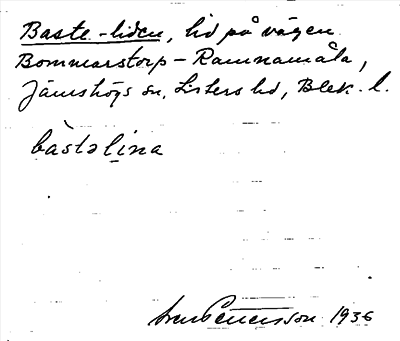 Baste-liden, lid på vägen
Bommarstorp - Ramnamåla,
Jämshögs sn, Listers hd, Blek. l.
bàstəlina
Sven Benson 1936